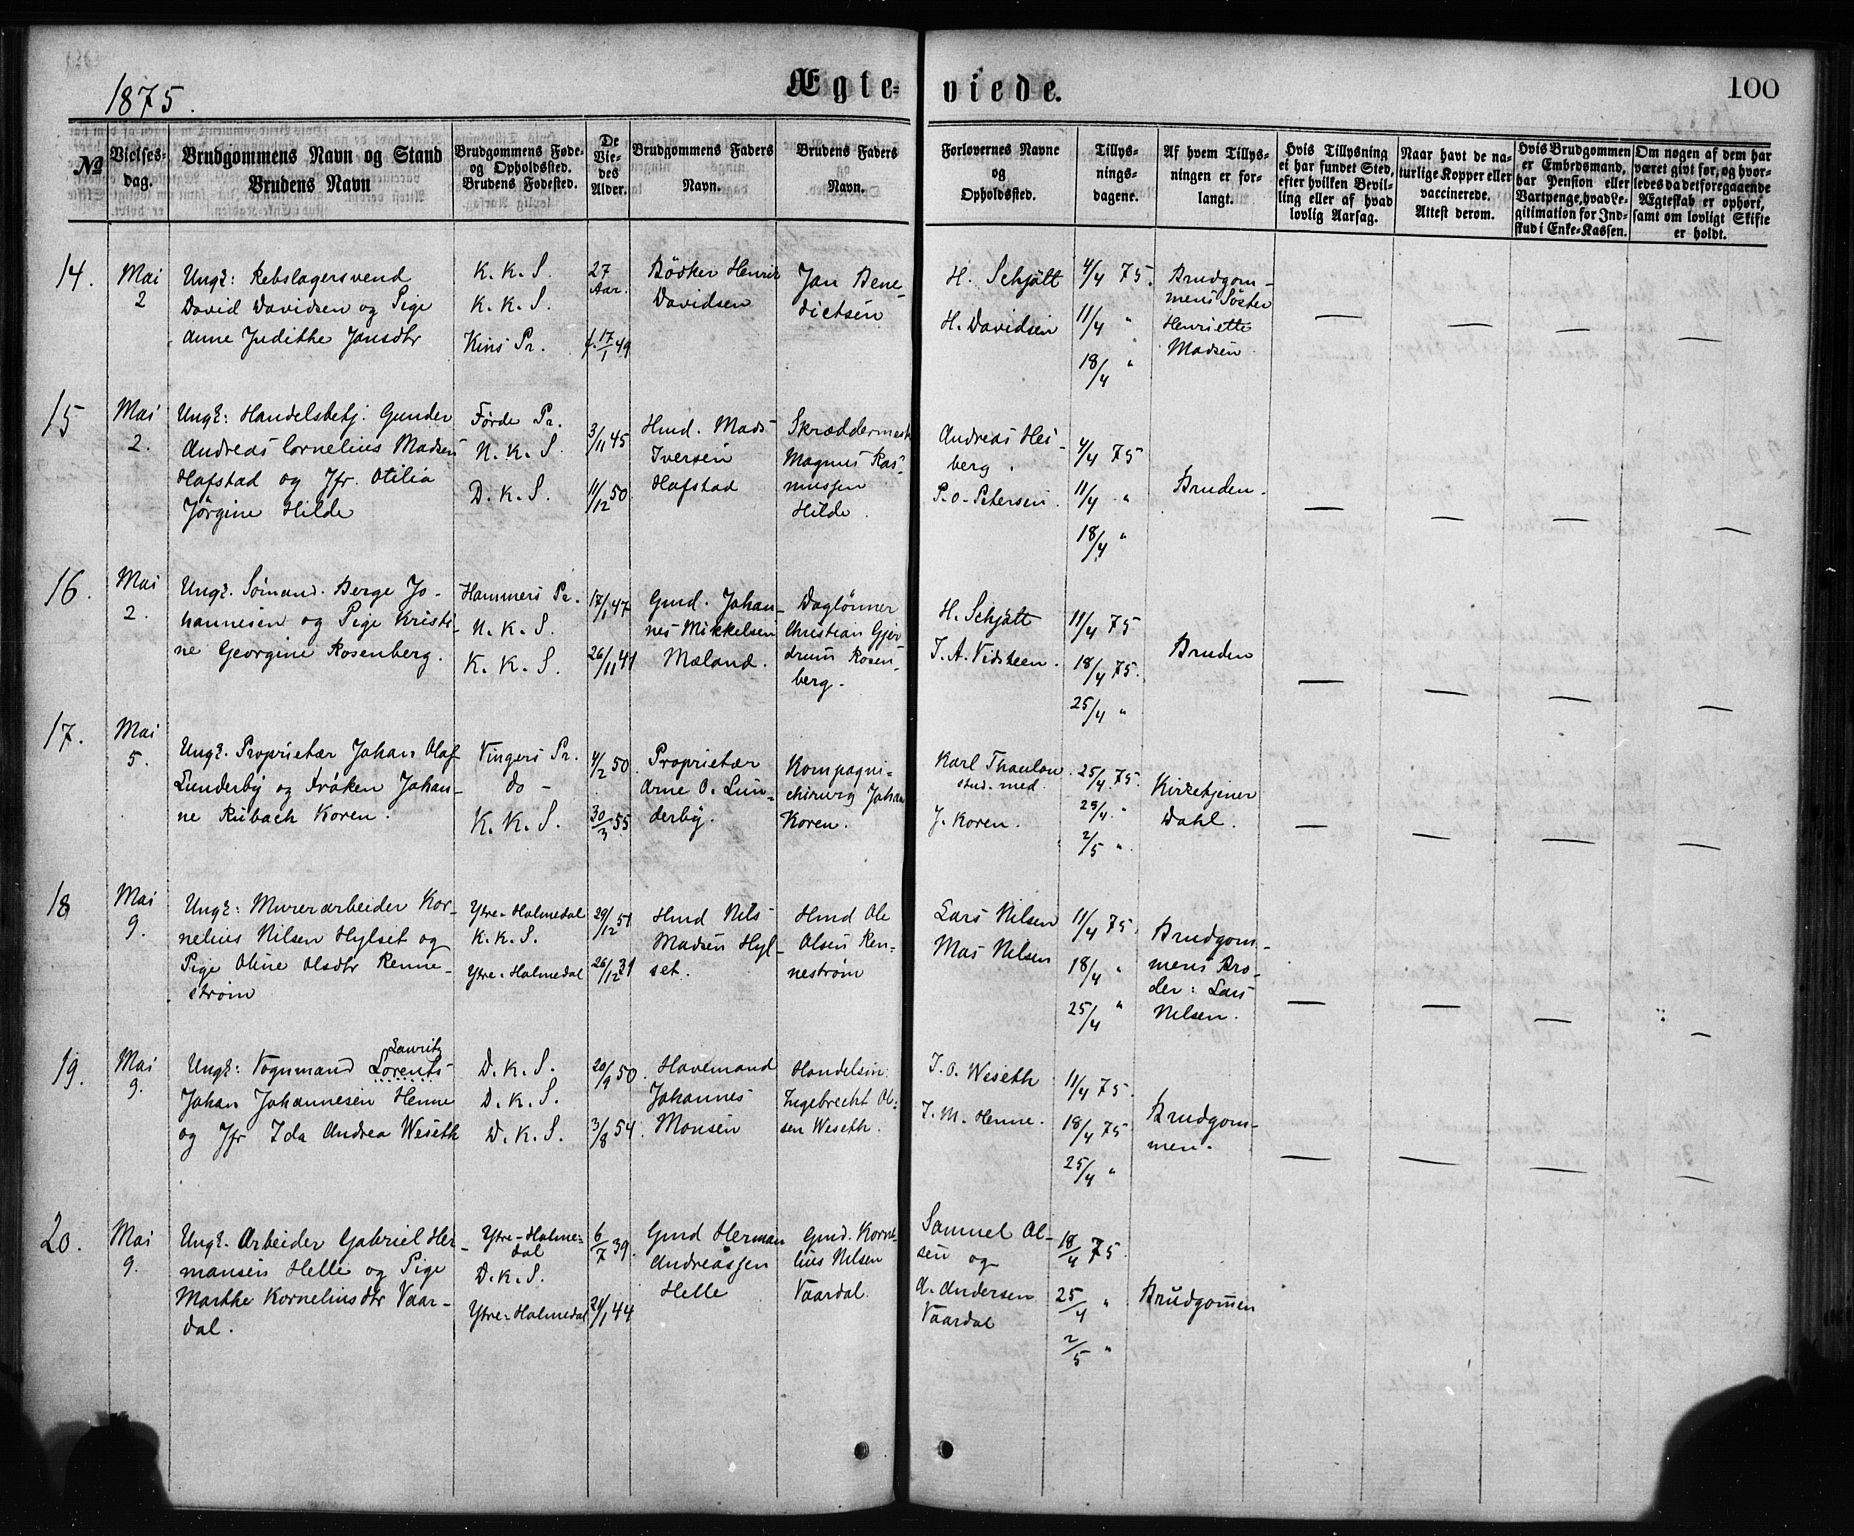 1875.
Ægte-
viede.
100
№
Vielses-
dag.
Brudgommens Navn og Stand
Brudens Navn
Brudgommens Føde-
og Opholdssted.
Brudens Fødested.
De
Vie-
des
Alder.
Brudgommens Faders
Navn.
Brudens Faders
Navn.
Forlovernes Navne
og
Opholdssted.
Tillys-
nings-
dagene.
Af hvem Tillys-
ningen er for-
langt.
Hvis Tillysning
ei har fundet Sted,
efter hvilken Bevil-
ling eller af hvad
lovlig Aarsag.
Naar havt de na-
turlige Kopper eller
vaccinerede.
Attest derom.
Hvis Brudgommen
er Embedsmand,
har Pension eller
Vartpenge, hvad Le-
gitimation for Ind-
skud i Enke-Kassen.
Om nogen af dem har
været givt før, og hvor-
ledes da detforegaaende
Ægteskab er ophørt,
samt om lovligt Skifte
er holdt.
14.
Mai
2
Ungk: Rebslagersvend
David Davidsen og Pige
Anne Judithe Jansdtr
K. K. S.
K. K. S.
Kins Pr.
27
Aar.
f. 17/1 49
Bödker Henrik
Davidsen
Jan Bene-
dictsen
H. Schjött
H. Davidsen
4/4 75.
11/4 "
18/4 "
Brudgom-
mens Søster
Henriette
Madsen
15
Mai
2.
Ungk: Handelsbetj. Gunder
Andreas Cornelius Madsen
Hafstad og Jfr. Otilia
Jörgine Hilde
Førde Pr.
N. K. S.
D. K. S.
3/11 45
11/12 50.
Hmd. Mads
Iversen
Hafstad
Skræddermest
Magnus Ras-
mussen
Hilde.
Andreas Hei-
berg.
P. O. Petersen.
4/4 75
11/4 "
18/4 "
Bruden.
16.
Mai
2.
Ungk. Sömand. Berge Jo-
hannesen og Pige Kristi-
ne Georgine Rosenberg.
Hammers Pr.
N. K. S.
K. K. S.
17/1 47
26/11 41
Gmd. Johan-
nes Mikkelsen
Mæland.
Daglönner
Christian Gjer
drum Rosen-
berg.
H. Schjött
T. A. Vidsteen.
11/4 75
18/4 75.
25/4 "
Bruden
17.
Mai
5.
Ungk. Proprietær Johan Olaf
Lunderby og Frøken Johan-
ne Rubach Koren.
Vingers Pr.
do -
K. K. S.
4/2 50.
30/3 55
Proprietær
Arne O. Lun-
derby.
Kompagni-
chirurg Johan
Koren.
Karl Thaulow
stud. med.
J. Koren.
25/4 75.
25/4 "
2/5 "
Kirketjener
Dahl.
18
Mai
9.
Ungk: Murerarbeider Kor-
nelius Nilsen Hylset og
Pige Oline Olsdtr Renne-
strøm
Ytre-Holmedal
K. K. S.
Ytre-Holmedal
29/12 51
26/12 31
Hmd Nils
Madsen Hyl-
set.
Hmd Ole
Olsen Ren-
nestrøm
Lars Nilsen
Mas Nilsen
11/4 75.
18/4 "
25/4 "
Brudgom-
mens Bro-
der: Lars
Nilsen.
19.
Mai
9.
Lauritz
Ungk: Vognmand Lorents
Johan Johannesen Henne
og Jfr Ida Andrea Weseth
D. K. S.
D. K. S.
D. K. S.
20/9 50.
3/8 54.
Havemand
Johannes
Monsen
Handelsm.
Ingebrecht Ol-
sen Weseth.
I. O. Weseth
I. M. Henne.
11/4 75.
18/4 75
25/4 "
Brudgom-
men.
20.
Mai
9.
Ungk. Arbeider Gabriel Her-
mansen Helle og Pige
Marthe Kornelius dtr Vaar-
dal.
Ytre-Holme-
dal
D. K. S.
Ytre-Holmedal
6/7 39.
21/1 44
Gmd Herman
Andreassen
Helle
Gmd. Korne-
lius Nilsen
Vaardal.
Samuel Ol-
sen og
A. Andersen
Vaardal
18/4 75.
25/4 "
2/5 "
Brudgomen